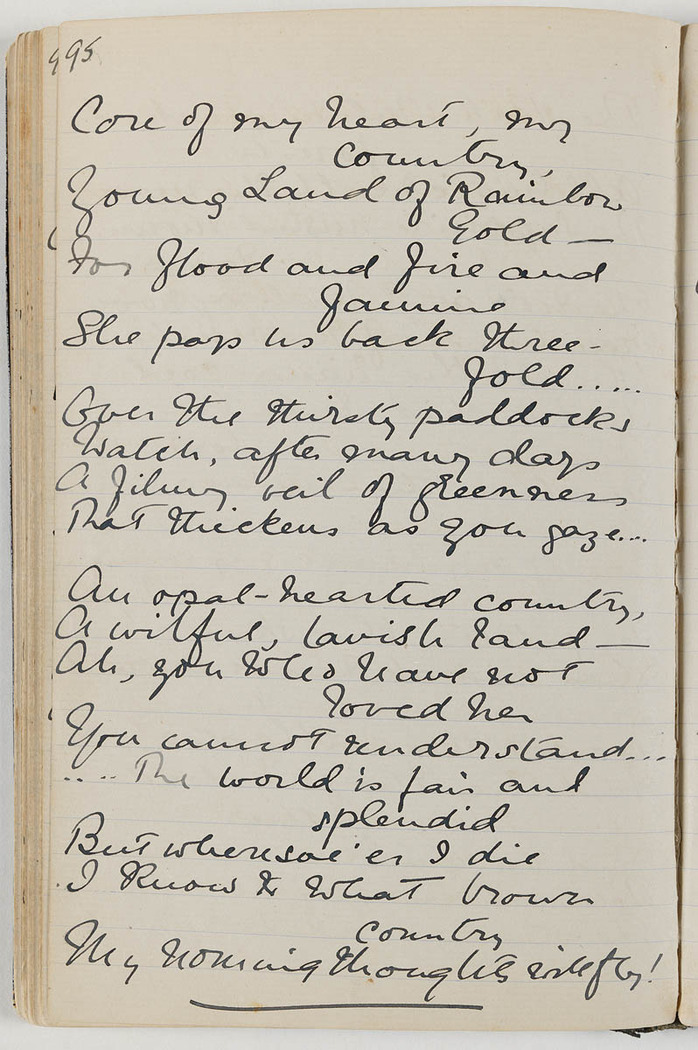 495
Core of my heart, my
country,
Young Land of Rainbow
Gold —
For flood and fire and
famine
She pays us back three-
fold.....
Over the thirsty paddocks
Watch, after many days
A filmy veil of greenness
That thickens as you gaze...
An opal-hearted country,
A wilful, lavish land —
Ah, you who have not
loved her
You cannot understand...
.... The world is fair and
splendid
But whereso'er I die
I know to what brown
country
My homing thoughts will fly!